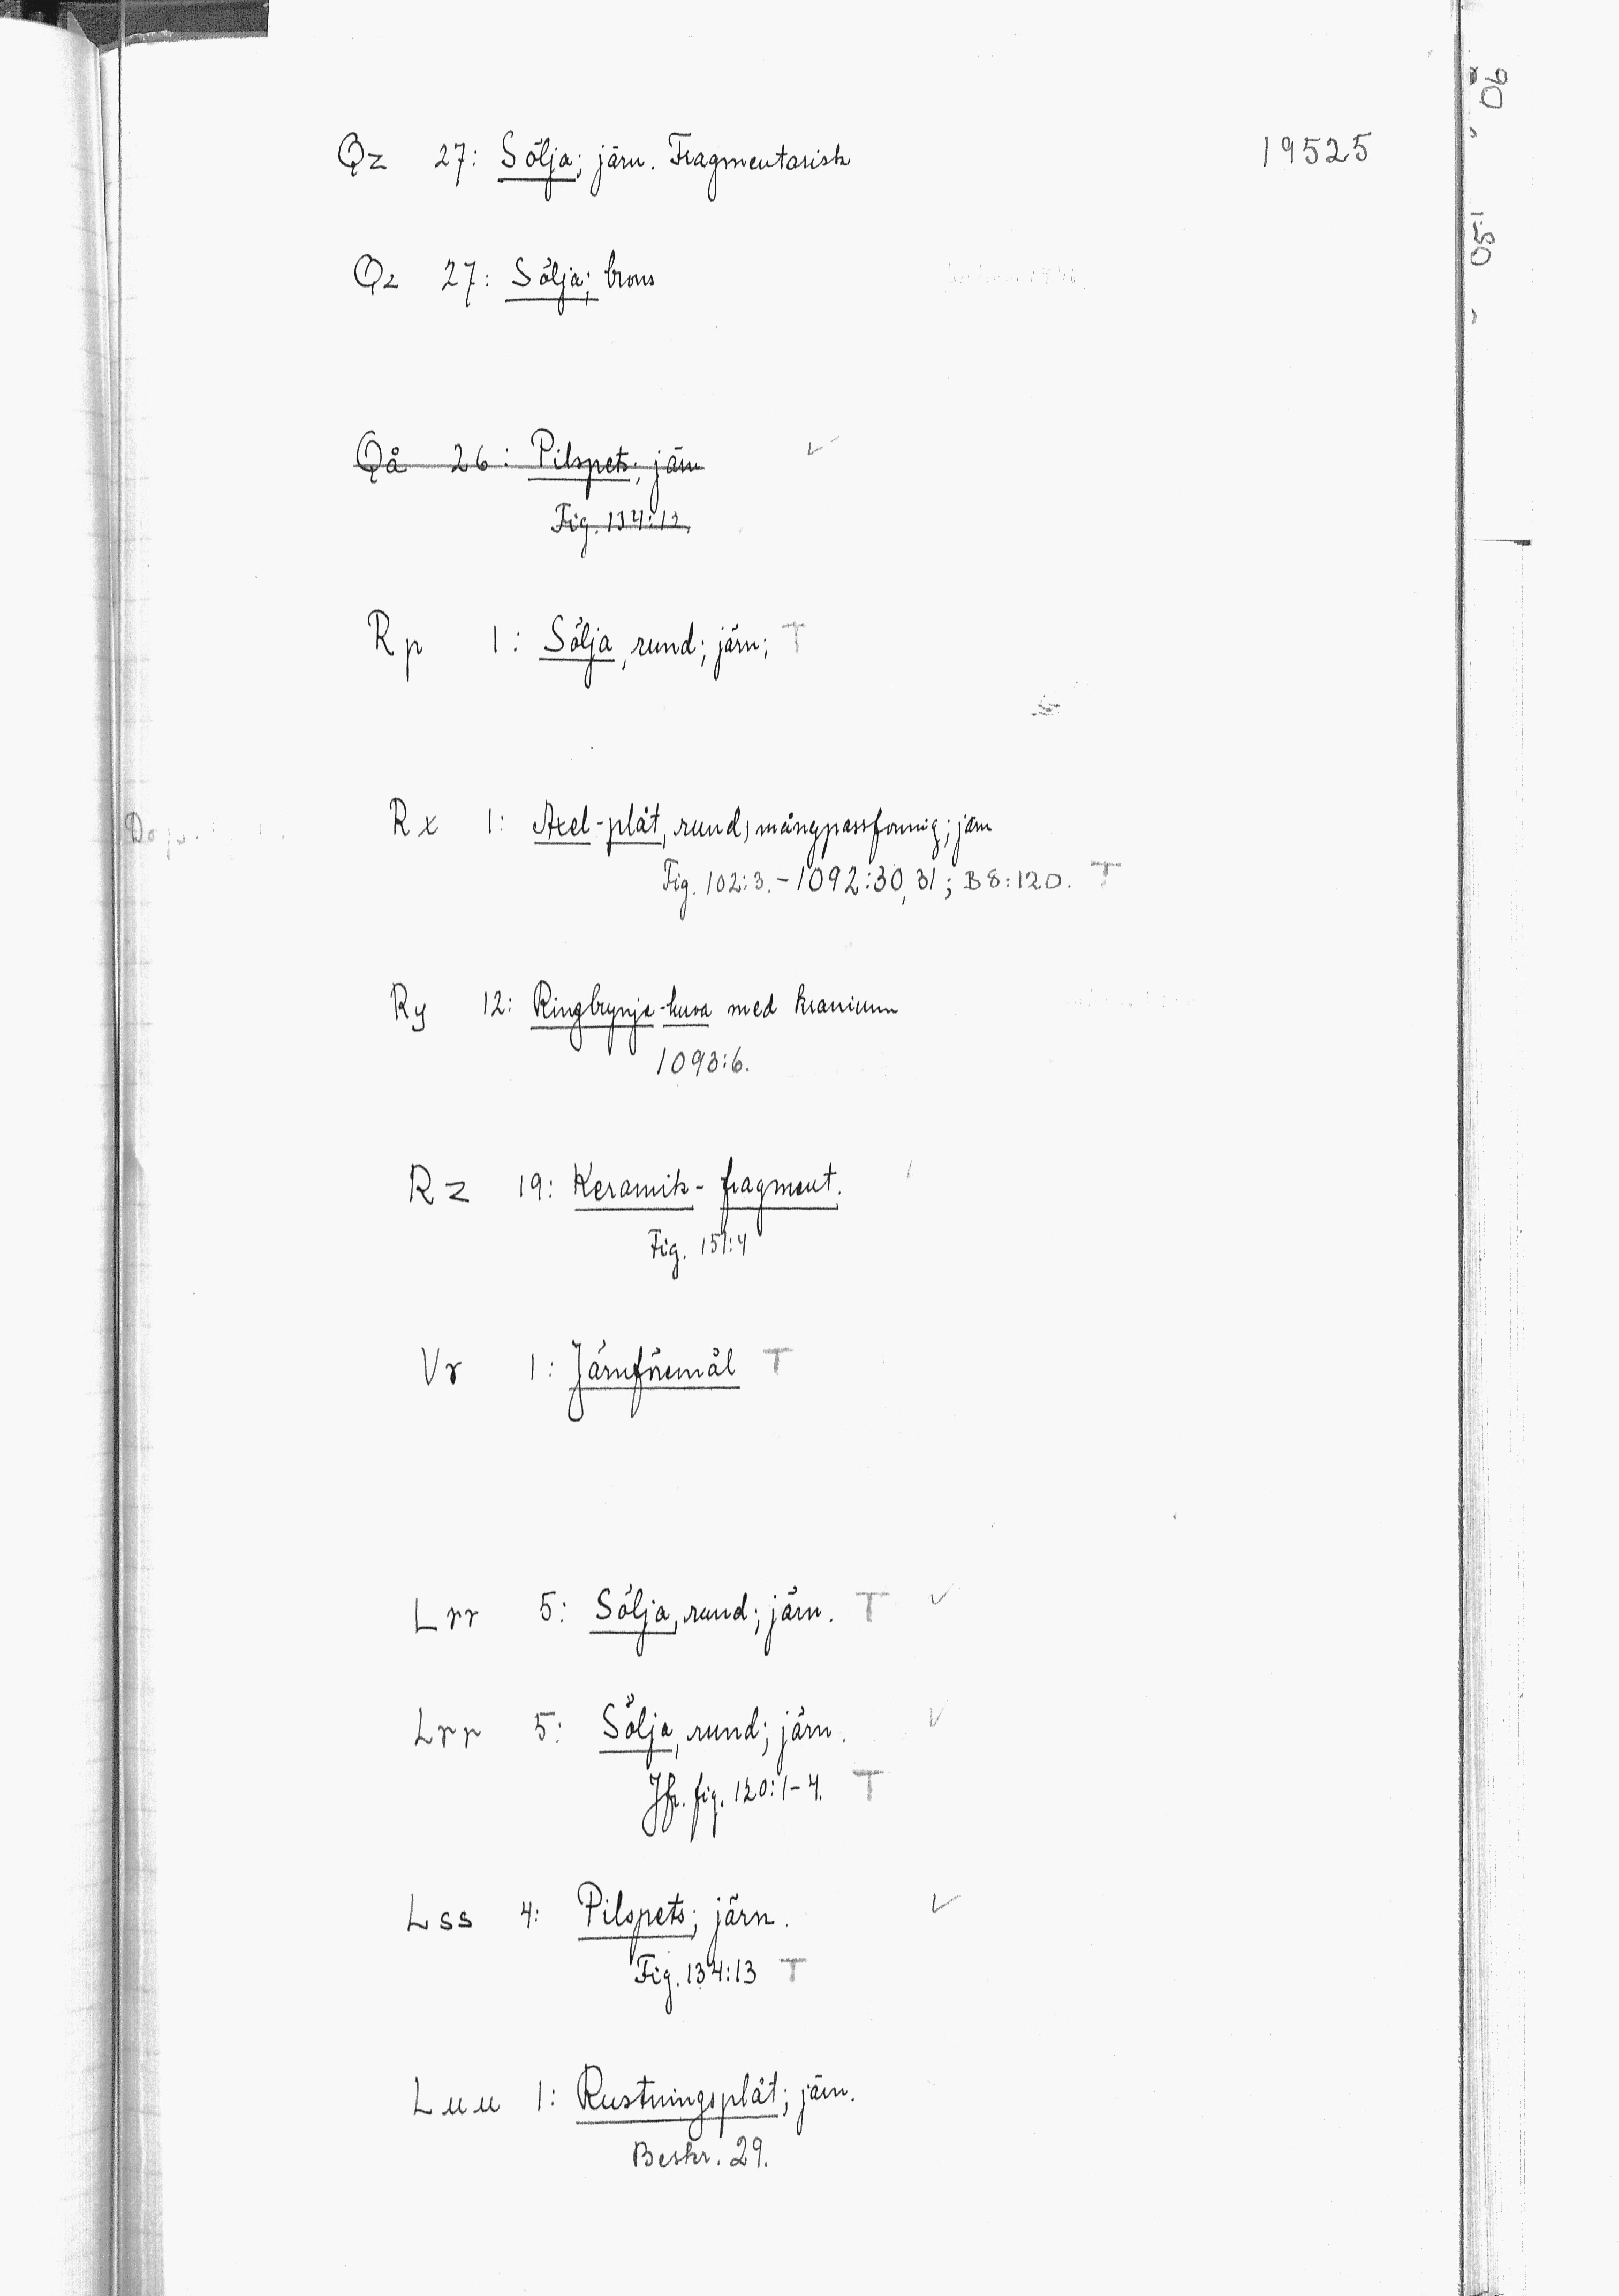 19525
Qz 27: Sölja; järn. Fragmentarisk
Qz 27: Sölja; brons
Qå 26: Pilspets; järn ✓
Fig. 134:13
Rp 1: Sölja, rund; järn; T
Rx 1: Axel-plåt, rund, mångpassformig; järn
Fig. 102:3. - 1092:30, 31; B8:120. T
Ry 12: Ringbrynje-huva med kranium
1093:6.
Rz 19: Keramik-fragment.
Fig. 151:4
Vr 1: Järnföremål T
Lrr 5: Sölja, rund; järn. T ✓
Lrr 5: Sölja, rund; järn. ✓
Jfr. fig. 120:1-4. T
Lss 4: Pilspets; järn. ✓
Fig. 134:13 T
Luu 1: Rustningsplåt; järn.
Beskr. 29.